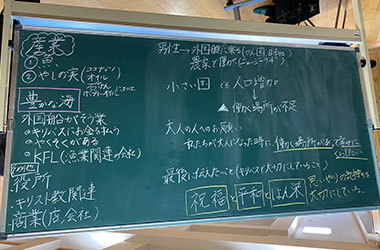 産業
①魚
②やしの実(ココナッツ
オイル
豊かな海
外国船がそう業
キリバスにお金を払う
やくそくがある
KFL(漁業関連の会社)
その他
役所
キリスト教関連
商業(店会社)
男性→外国船に乗る
農家で働く(ニュージーランド)
小さい国 でも人口増加
▲働く場所の不足
大人の人へのお願い
私たちが大人になった時に、働く場所が
最後に伝えたいこと(キリバスで大切にしていること)
祝福と平和とはん栄
思いやりの気持ちを
大切にしている。